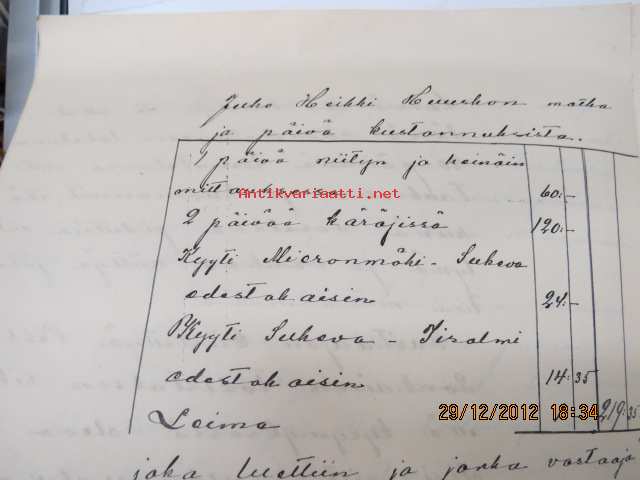 Juho Heikki Huuskon matka
ja päivä kustannuksista.
1 päivä niityn ja heinäin
60:-
Antikvariaatti.net
2 päivää käräjissä 120:-
Kyyti Micronmäki - Sukeva
edestakaisin 24:-
Kyyti Sukeva - Iisalmi
edestakaisin 14:35
Loima 219:35
29/12/2012 18:34
joka luettiin ja jonka vastaaja